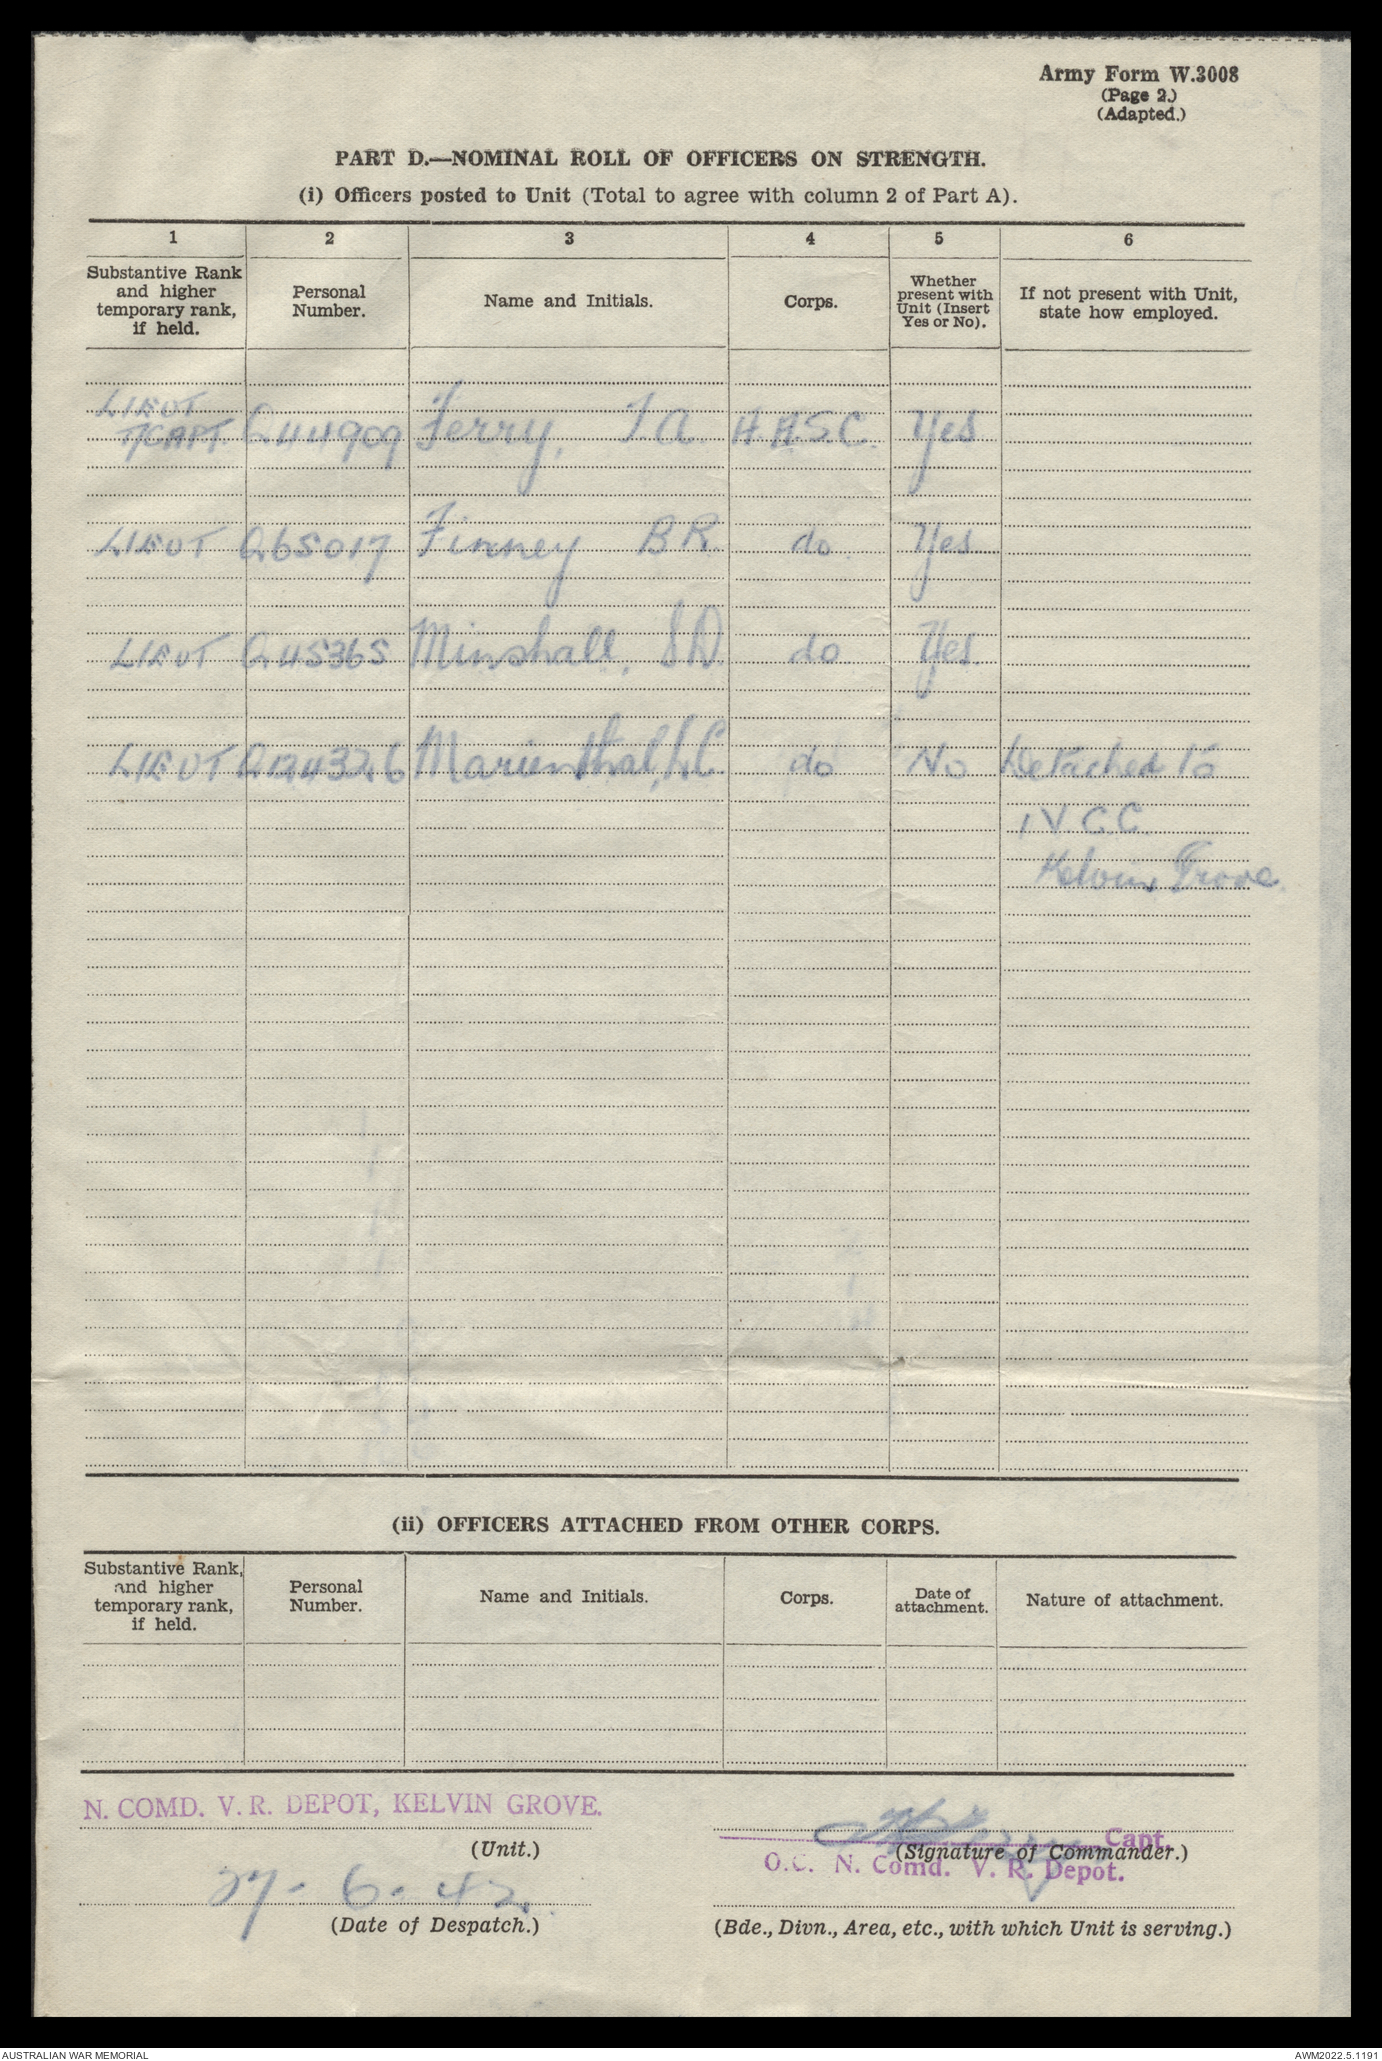 Army Form W.3008
(Page 2.)
(Adapted.)
PART D.—NOMINAL ROLL OF OFFICERS ON STRENGTH.
(i) Officers posted to Unit (Total to agree with column 2 of Part A).
1 2 3 4 5 6
Substantive Rank and higher temporary rank, if held. Personal Number. Name and Initials. Corps. Whether present with Unit (Insert Yes or No). If not present with Unit, state how employed.
LIEUT
T/CAPT. Q44909 Ferry, F A. A.A.S.C. Yes
LIEUT Q65017 Finney B R. do. Yes
LIEUT Q45365 Minshall, S D. do Yes.
LIEUT Q124326 Marienthal, L.C. do No Detached to
1 V C.C.
Kelvin Grove.
(ii) OFFICERS ATTACHED FROM OTHER CORPS.
Substantive Rank, and higher temporary rank, if held. Personal Number. Name and Initials. Corps. Date of attachment. Nature of attachment.
N. COMD. V. R. DEPOT, KELVIN GROVE.
(Unit.)
Capt.
(Signature of Commander.)
O.C. N. Comd. V. R. Depot.
27. 6. 42.
(Date of Despatch.)
(Bde., Divn., Area, etc., with which Unit is serving.)
AUSTRALIAN WAR MEMORIAL
AWM2022.5.1191